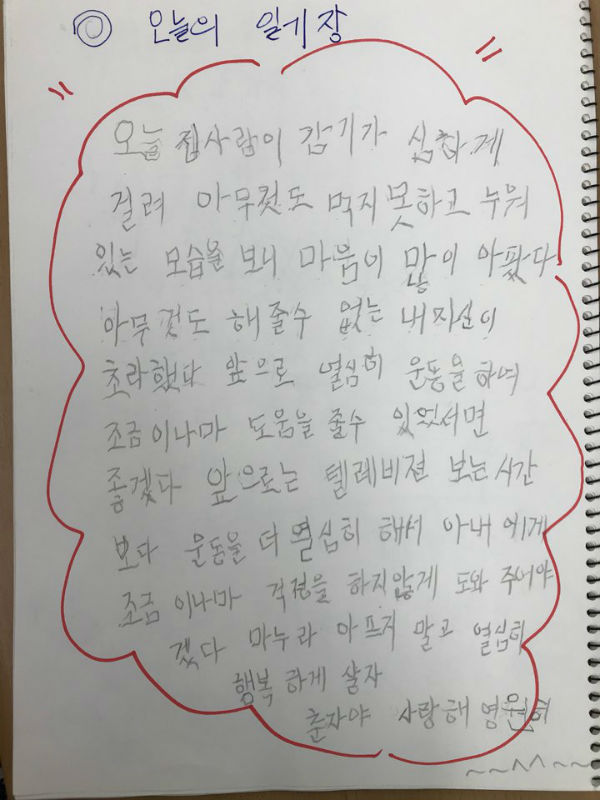 ◎ 오늘의 일기장
오늘 집사람이 감기가 심하게
걸려 아무컷도 먹지못하고 누워
있는 모습을 보니 마음이 많이 아팠다
아무것도 해줄수 없는 내자신이
초라했다 앞으로 열심히 운동을하여
조금이나마 도움을 줄수 있었서면
좋겠다 앞으로는 텔레비젼 보는시간
보다 운동을 더 열심히 해서 아내에게
조금 이나마 걱정을 하지않게 도와 주어야
겠다 마누라 아프지 말고 열심히
행복하게 살자
춘자야 사랑해 영원히
~~^^~~